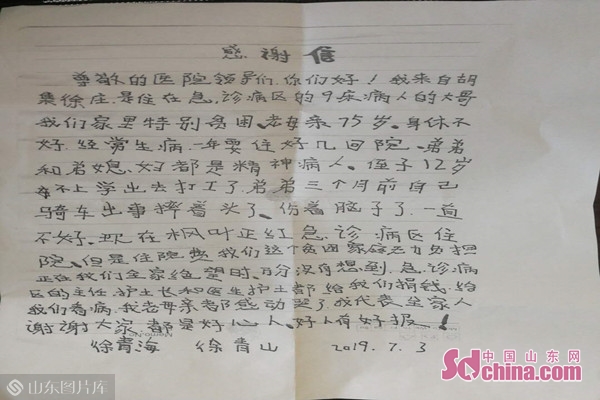 感谢信
尊敬的医院领导们,你们好!我来自胡
集徐庄.是住在急.诊病区的9床病人的大哥
我们家里特别贫困、老母亲75岁.身体不
好.经常生病.一年要住好几回院、弟弟
和弟媳、妇都是精神病人、侄子12岁
不上学出去打工了.弟弟三个月前自己
骑车出事摔着头了、伤着脑子了.一直
不好.现在枫叶正红急诊病区住
院、但是住院费我们这个贫困家庭无力负担
正在我们全家绝望时.万分没有想到.急.诊病
区的主任.护士长和医生护士都给我们捐钱.给
我们看病.我老母亲都感动哭了我代表全家人
谢谢大家.都是好心人.好人有好报!
徐青海 徐青山 2019.7.3
山东图片库
中国山东网
Sdchina.com